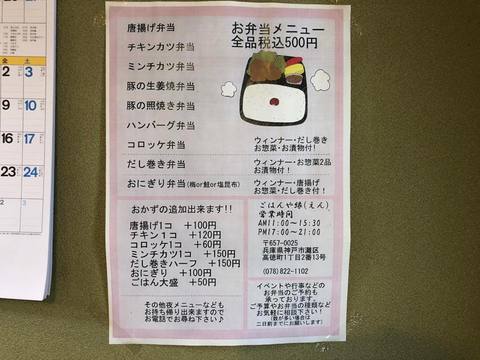 金
土
2
3
9
10
16
17
23
24
お弁当メニュー
全品税込500円
唐揚げ弁当
チキンカツ弁当
ミンチカツ弁当
豚の生姜焼弁当
豚の照焼き弁当
ハンバーグ弁当
コロッケ弁当
ウィンナー・だし巻き
お惣菜・お漬物付!
だし巻き弁当
ウィンナー・お惣菜2品
お漬物付!
おにぎり弁当(梅or鮭or塩昆布)
ウィンナー・唐揚げ
お惣菜・だし巻き付!
おかずの追加出来ます!!
唐揚げ1コ +100円
チキン1コ +120円
コロッケ1コ +60円
ミンチカツ1コ +150円
だし巻きハーフ +150円
おにぎり +100円
ごはん大盛 +50円
その他夜メニューなども
お持ち帰り出来ますので
お電話でお尋ね下さい♪
ごはんや縁(えん)
営業時間
AM11:00~15:30
PM17:00~21:00
〒657-0025
兵庫県神戸市灘区
高徳町1丁目2番13号
(078)822-1102
イベントや行事などの
お弁当のご予約も
承っております。
ご予算やお弁当の種類など
お気軽に相談下さい!
(数が多い場合は
二日前までにお願いします)